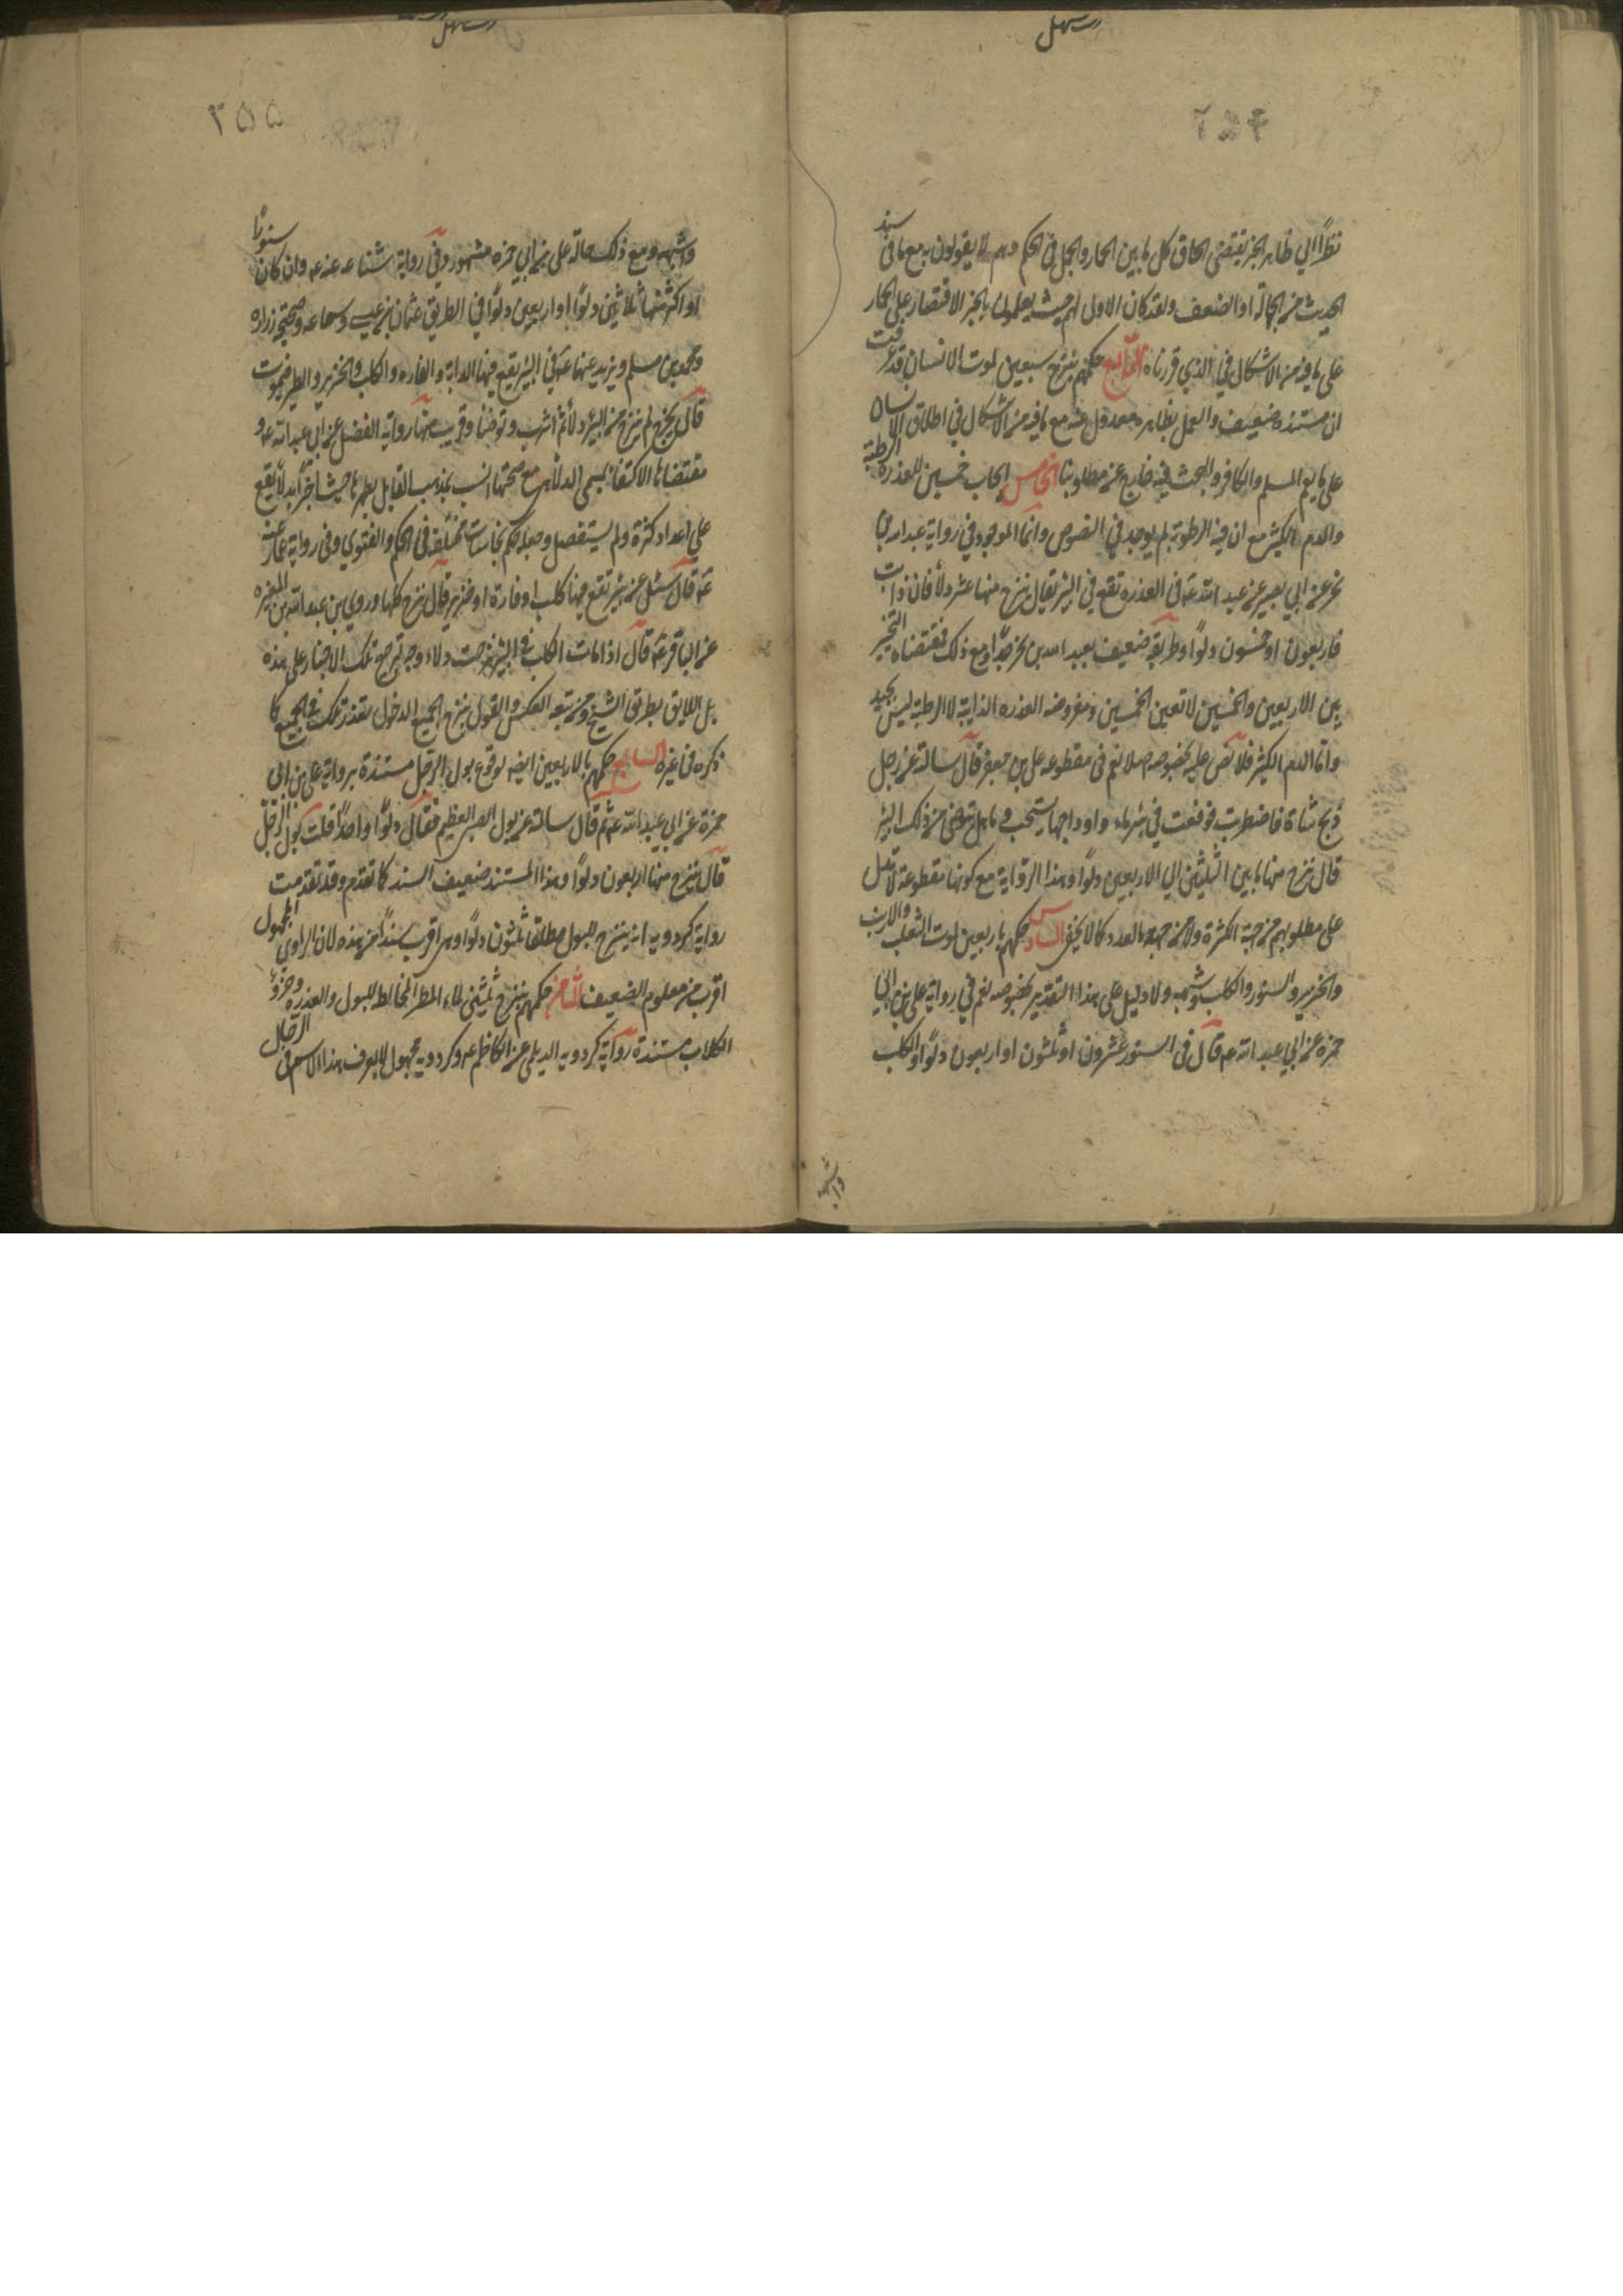 رسهل
٢٥٤
نظرًا الي ظاهر الخبر يقتضي الحاق كل ما بين الحمار والجمل في الحكم وهم لا يقولون به مع ما في سند
الحديث من الجهالة او الضعف ولقد كان الاولي لهم حيث يعلمون بالخبر الاقتصار علي الحمار
علي ما فيه من الاشكال في الذي قررناه الرابع حكمهم بنزح سبعين لموت الانسان قد عرفت
ان مستنده ضعيف والعمل بظاهره معدول عنه مع ما فيه من الاشكال في اطلاق الانسان
علي ما يعم المسلم والكافر والبحث فيه خارج عن مطلوبنا الخامس ايجاب خمسين للعذرة الرطبة
والدم الكثير مع ان قيد الرطوبة لم يوجد في النصوص وانما الموجود في رواية عبد الله بن
بحر عن ابي بصير عن ابي عبد الله عه في العذره تقع في البئر فقال ينزح منها عشر دلاء فان ذابت
فاربعون او خمسون دلوًا وطريقه ضعيف بعبد الله بن بحر جدًّا ومع ذلك فمقتضاه التخيير
بين الاربعين والخمسين لا تعين الخمسين ومفروضه العذره الذايبة لا الرطبة ليس بجيد
واما الدم الكثير فلا نص عليه بخصوصه اصلا نعم في مقطوعه علي بن جعفر قال سالته عن رجل
ذبح شاة فاضطربت فوقعت في بئر ماء واوداجها تشخب دما هل يتوضي من ذلك البئر
قال ينزح منها ما بين الثلثين الي الاربعين دلوًا وهذا الرواية مع كونها مقطوعة لا تدل
علي مطلوبهم من جهة الكثرة ولا من جهة العدد كما لا يخفي السادس حكمهم باربعين لموت الثعلب والارنب
والخنزير والسنور والكلب وشبهه ولا دليل علي هذا التقدير بخصوصه نعم في رواية علي بن ابي
حمزه عن ابي عبد الله عه قال في السنور عشرون او ثلثون او اربعون دلوًا والكلب
وشبهه
رسهل
٢٥٥
وشبهه ومع ذلك حالة علي بن ابي حمزه مشهور وفي رواية سماعه عنه عه وان كان سنورًا
او اكثر منها ثلاثين دلوًا او اربعين دلوًا في الطريق عثمان بن عيسي وسماعه وصحيح زراره
ومحمد بن مسلم وبريد عنهما عه في البئر يقع فيها الدابة والفاره والكلب والخنزير والطير فيموت
قال يخرج ثم ينزح من البئر دلاء ثم اشرب وتوضا وقريب منها رواية الفضل عن ابي عبد الله عه و
مقتضاها الاكتفاء بمسمي الدلاء مع صحتها انسب بمذهب القايل بطهرها حيث اخبر انه لا يقع
علي اعداد كثرة ولم يستفصل وجعله حكم نجاسات مختلفه في الحكم والفتوي وفي رواية عمار عنه
عه قال سئل عن بئر تقع فيها كلب او فارة او خنزير قال ينزح كلها وروي بن عبد الله بن المغيره
عن الباقر عه قال اذا مات الكلب في البئر نزحت ولا وجه لترجيح تلك الاخبار علي هذه
بل اللايق بطريق الشيخ ومن تبعه العكس والقول بنزح الجميع لدخول بتعذر تلك في الجميع كما
ذكره في غيره السابع حكمهم بالاربعين ايضه لوقوع بول الرجل مستندة برواية علي بن ابي
حمزة عن ابي عبد الله عه قال سالته عن بول الصبي الفطيم فقال دلوًا واحدًا قلت بول الرجل
قال ينزح منها اربعون دلوًا وهذا المستند ضعيف السند كما تقدم وقد تقدمت
رواية كردويه انه ينزح للبول مطلقا ثلثون دلوًا وهي اقرب سندًا من هذه لان الراوي المجهول
اقرب من معلوم الضعيف الثامن حكمهم بنزح ثلثين لماء المطر المخالط للبول والعذره وخرؤ
الكلاب مستندة رواية كردويه الديلمي عن الكاظم عه وكردويه مجهول لا يعرف بهذا الاسم في الرجال